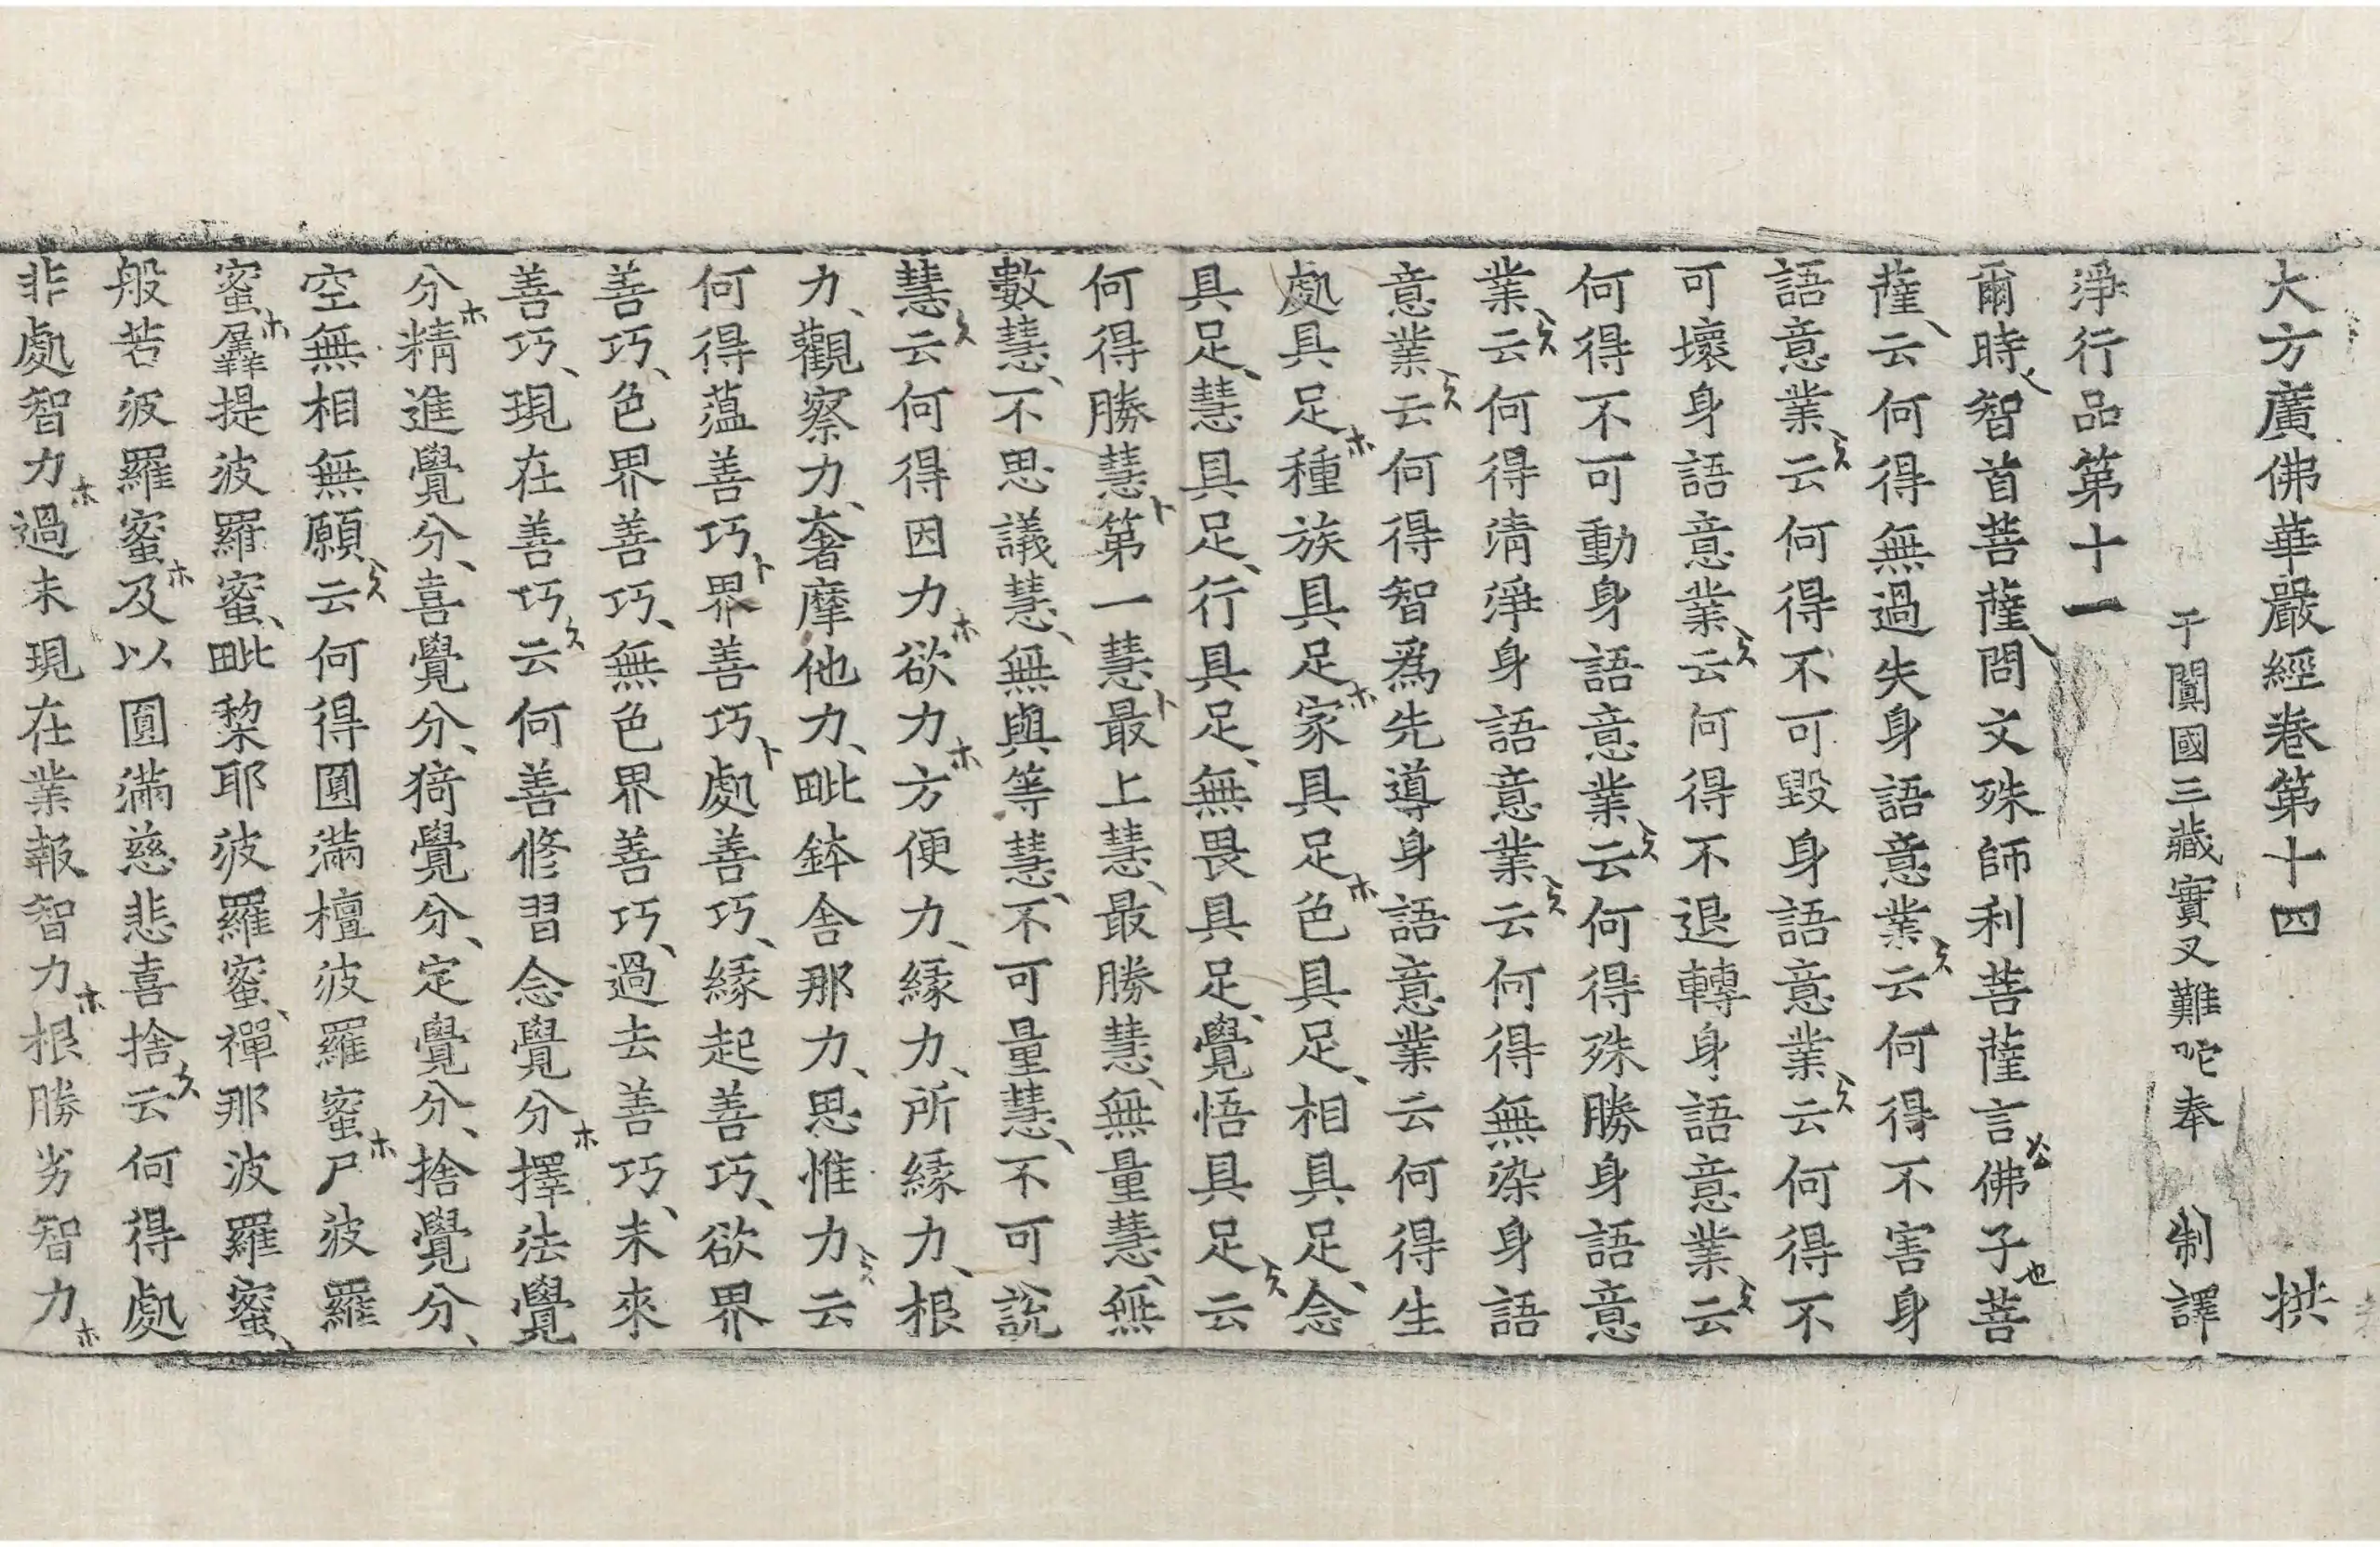 大方廣佛華嚴經卷第十四 拱
于闐國三藏實叉難陀奉 制譯
淨行品第十一
爾時智首菩薩問文殊師利菩薩言佛子菩
薩云何得無過失身語意業云何得不害身
語意業云何得不可毀身語意業云何得不
可壞身語意業云何得不退轉身語意業云
何得不可動身語意業云何得殊勝身語意
業云何得清淨身語意業云何得無染身語
意業云何得智為先導身語意業云何得生
處具足種族具足家具足色具足相具足念
具足慧具足行具足無畏具足覺悟具足云
何得勝慧第一慧最上慧最勝慧無量慧無
數慧不思議慧無與等慧不可量慧不可說
慧云何得因力欲力方便力緣力所緣力根
力觀察力奢摩他力毗鉢舍那力思惟力云
何得蘊善巧界善巧處善巧緣起善巧欲界
善巧色界善巧無色界善巧過去善巧未來
善巧現在善巧云何善修習念覺分擇法覺
分精進覺分喜覺分猗覺分定覺分捨覺分
空無相無願云何得圓滿檀波羅蜜尸波羅
蜜羼提波羅蜜毗梨耶波羅蜜禪那波羅蜜
般若波羅蜜及以圓滿慈悲喜捨云何得處
非處智力過未現在業報智力根勝劣智力